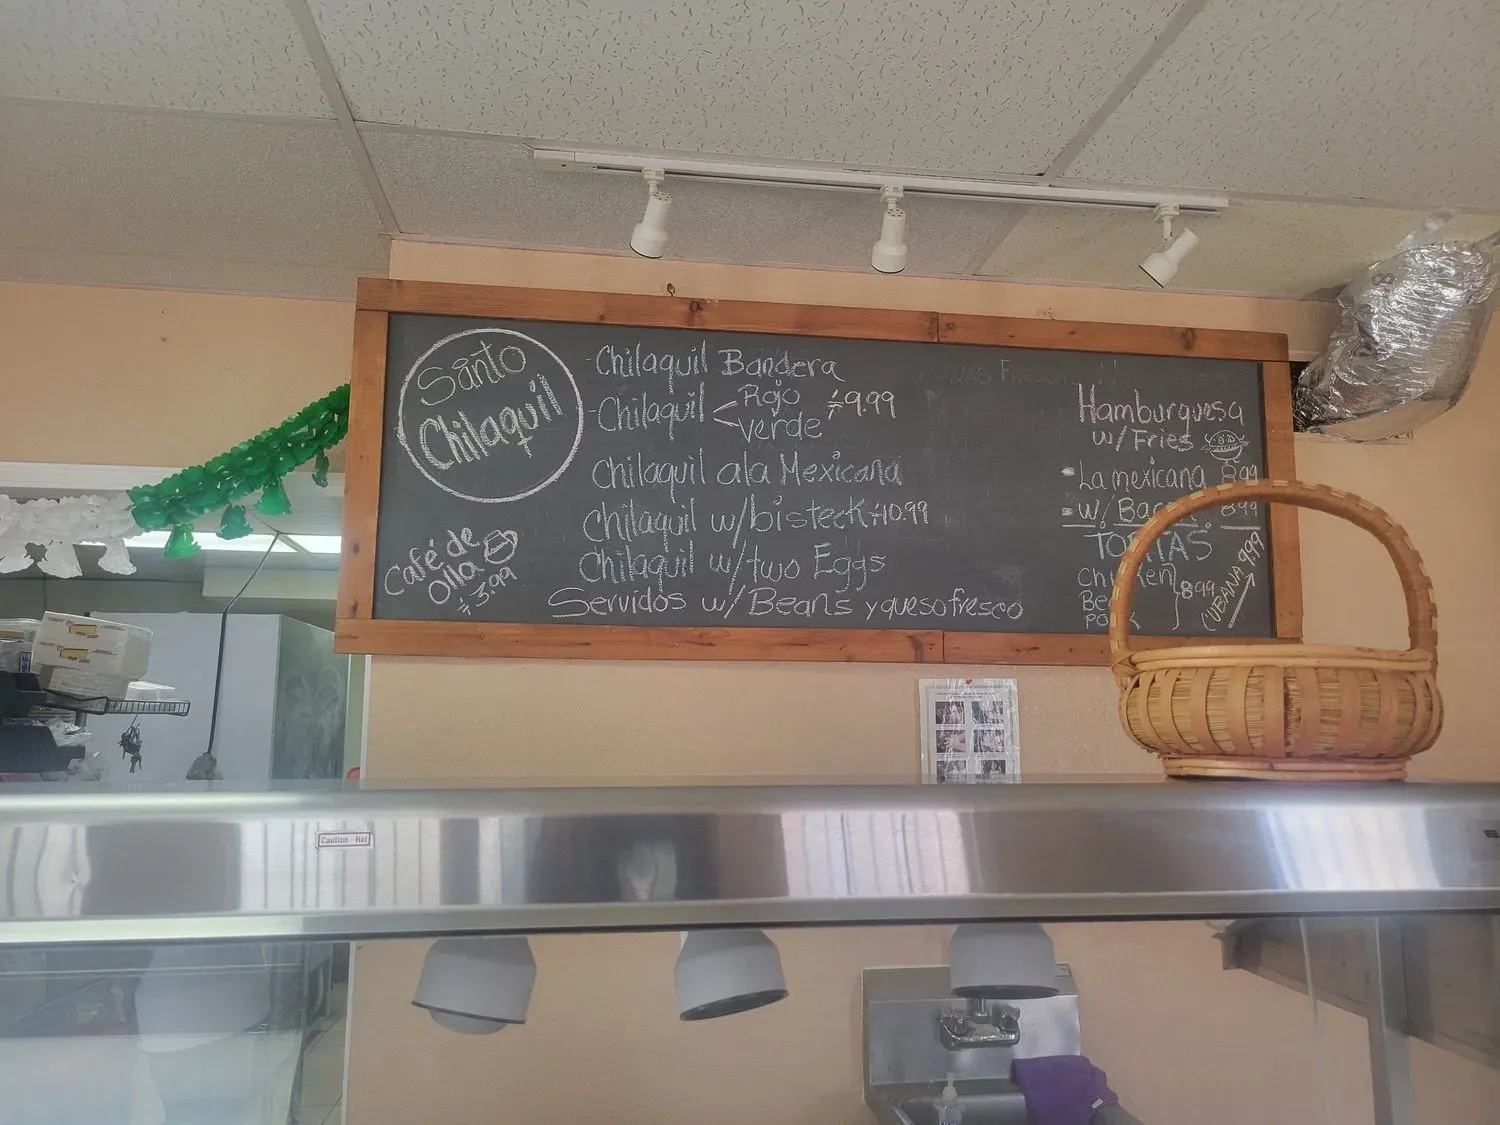 Santo
Chilaquil
-Chilaquil Bandera
-Chilaquil < Rojo
Verde ÷9.99
Chilaquil ala Mexicana
Chilaquil w/bisteck ÷10.99
Chilaquil w/two Eggs
Servidos w/Beans y queso fresco
Café de
Olla
÷3.99
Hamburguesa
w/Fries
- La mexicana 8.99
- w/ 8.99
TORTAS
Chicken
8.99
CUBANA 9.99
Caution - Hot